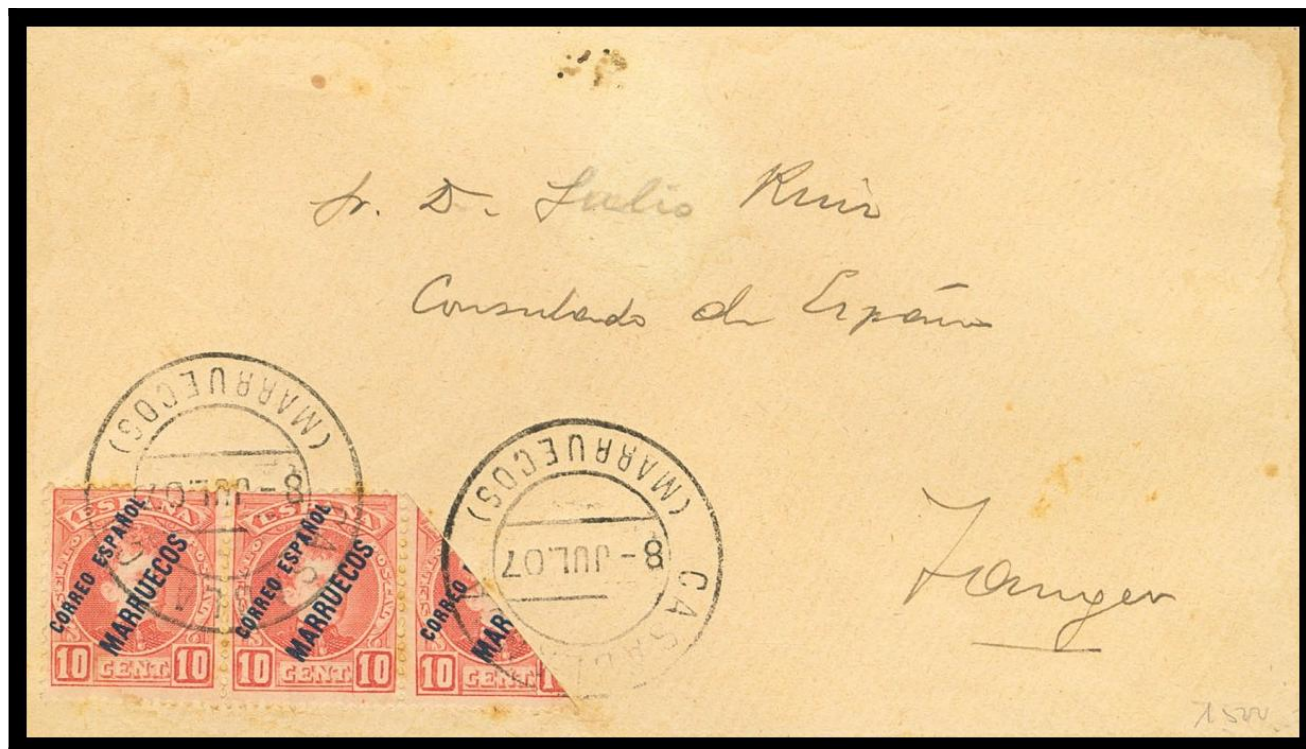 Sr. D. Julio Ruiz
Consulado de España
Tanger
(MARRUECOS)
8 - JUL.07
CASA
(MARRUECOS)
8 - JUL.07
CASA
ESPAÑA
CORREO ESPAÑOL
MARRUECOS
10 CENT 10
ESPAÑA
CORREO ESPAÑOL
MARRUECOS
10 CENT 10
CORREO
MAR
10 CENT 1
1500